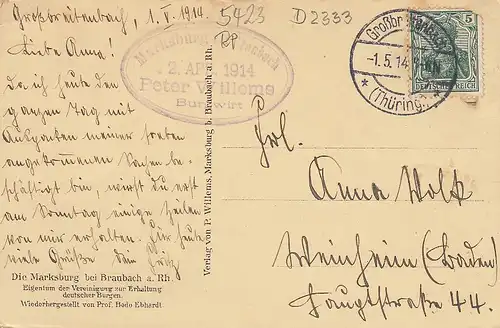 Großbreitenbach, 1. V. 1914.
Liebe Anna!
Da ich heute den
ganzen Tag mit
Auspacken meiner soeben
angekommenen Sachen be-
schäftigt bin, wirst Du erst
am Sonntag einige Zeilen
von mir erhalten. Für heute
viele Grüße Dein Fritz
Die Marksburg bei Braubach a. Rh.
Eigentum der Vereinigung zur Erhaltung
deutscher Burgen.
Wiederhergestellt von Prof. Bodo Ebhardt.
Verlag von P. Willems, Marksburg b. Braubach a. Rh.
5423
RP
D2333
Marksburg Braubach a. Rh.
2. APR. 1914
Peter Willems
Burgwirt
Großbreitenbach
-1.5.14
* (Thüring.) *
5
DEUTSCHES REICH
Frl.
Anna Wolk
Weinheim (Baden)
Hauptstraße 44.